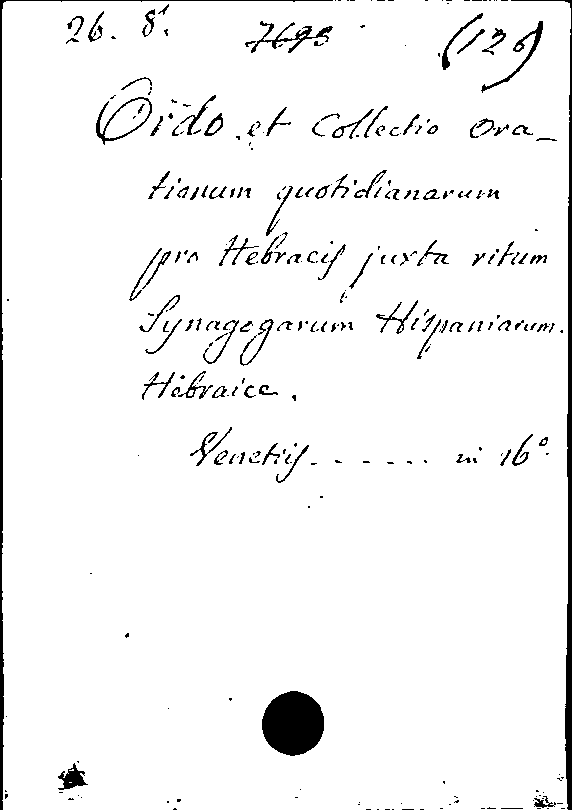 26. 8'. 7693 (126)
Ordo et Collectio Ora-
tionum quotidianarum
pro Hebraeis juxta ritum
Synagogarum Hispaniarum.
Hebraice.
Venetiis . - - - - . . in 16°.